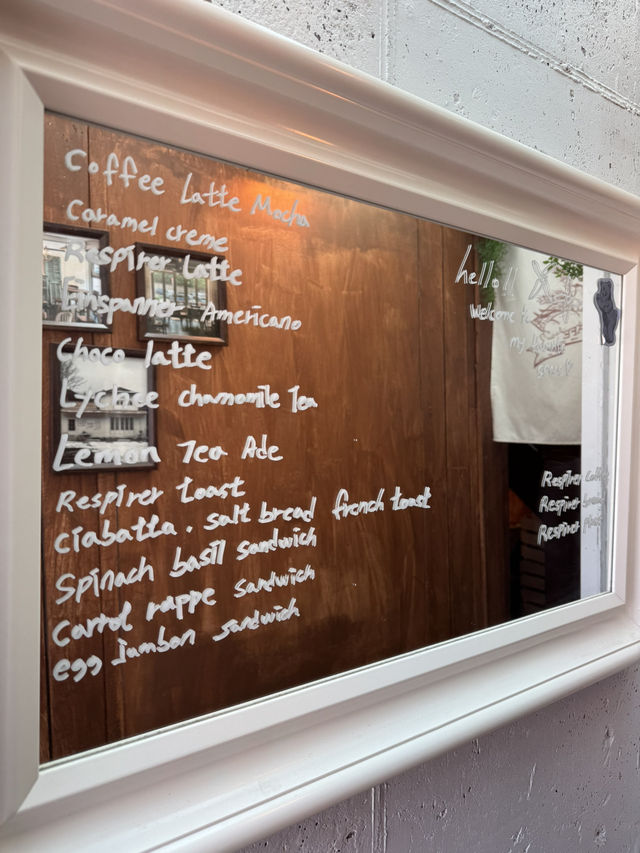 Coffee Latte Mocha
Caramel creme
Respirer Latte
Einspanner Americano
Choco latte
Lychee chamomile Tea
Lemon Tea Ade
Respirer toast
ciabatta. salt bread french toast
Spinach basil sandwich
Carrot rappe sandwich
egg Jambon sandwich
hello!!
Welcome to
my
Respirer
Respirer
Respirer